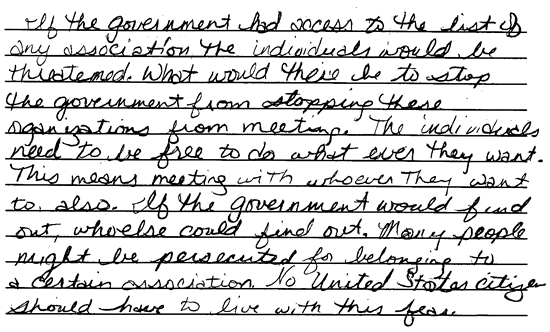 If the government had access to the list of
any association the individuals would be
threatened. What would there be to stop
the government from stopping these
oganizations from meeting. The individuals
need to be free to do what ever they want.
This means meeting with whoever They want
to, also. If the government would find
out, whoelse could find out. Many people
might be persecuted for belonging to
a certain association. No United States citizen
should have to live with this fear.